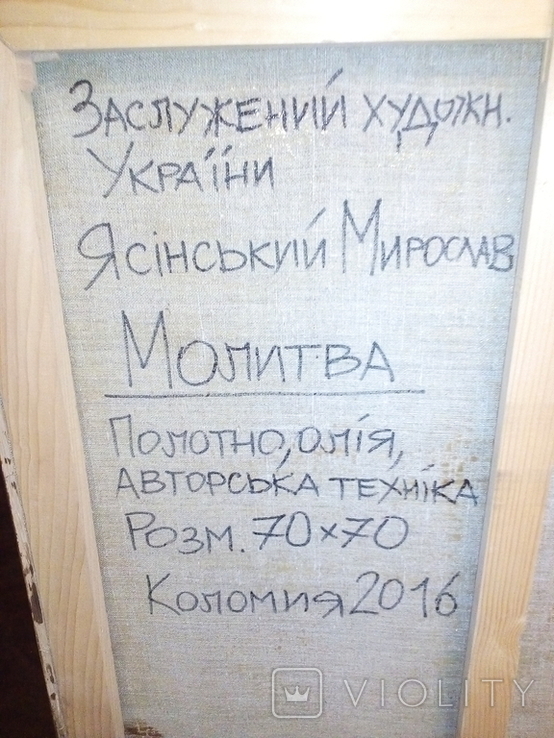 Заслужений художн.
України
Ясінський Мирослав
Молитва
Полотно, олія,
авторська техніка
Розм. 70х70
Коломия 2016
VIOLITY